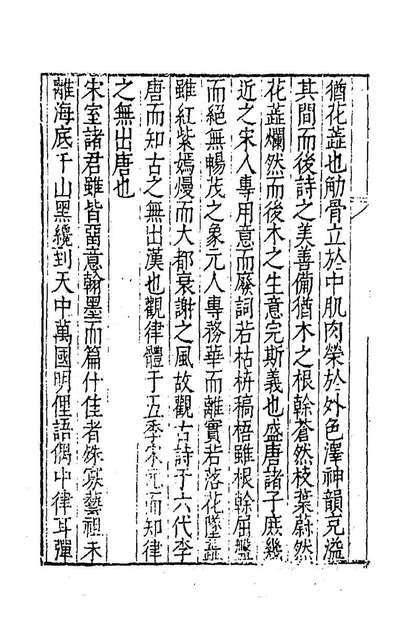 猶花蘂也筋骨立於中肌肉榮於外色澤神韻充溢
其間而後詩之美善備猶木之根榦蒼然枝葉蔚然
花蘂爛然而後木之生意完斯義也盛唐諸子庶幾
近之宋人專用意而廢詞若枯枿稿梧雖根榦屈盤
而絕無暢茂之象元人專務華而離實若落花墜蘂
雖紅紫嫣熳而大都衰謝之風故觀古詩于六代李
唐而知古之無出漢也觀律體于五季宋元而知律
之無出唐也
宋室諸君雖皆留意翰墨而篇什佳者殊寡藝祖未
離海底千山黑纔到天中萬國明俚語偶中律耳彈